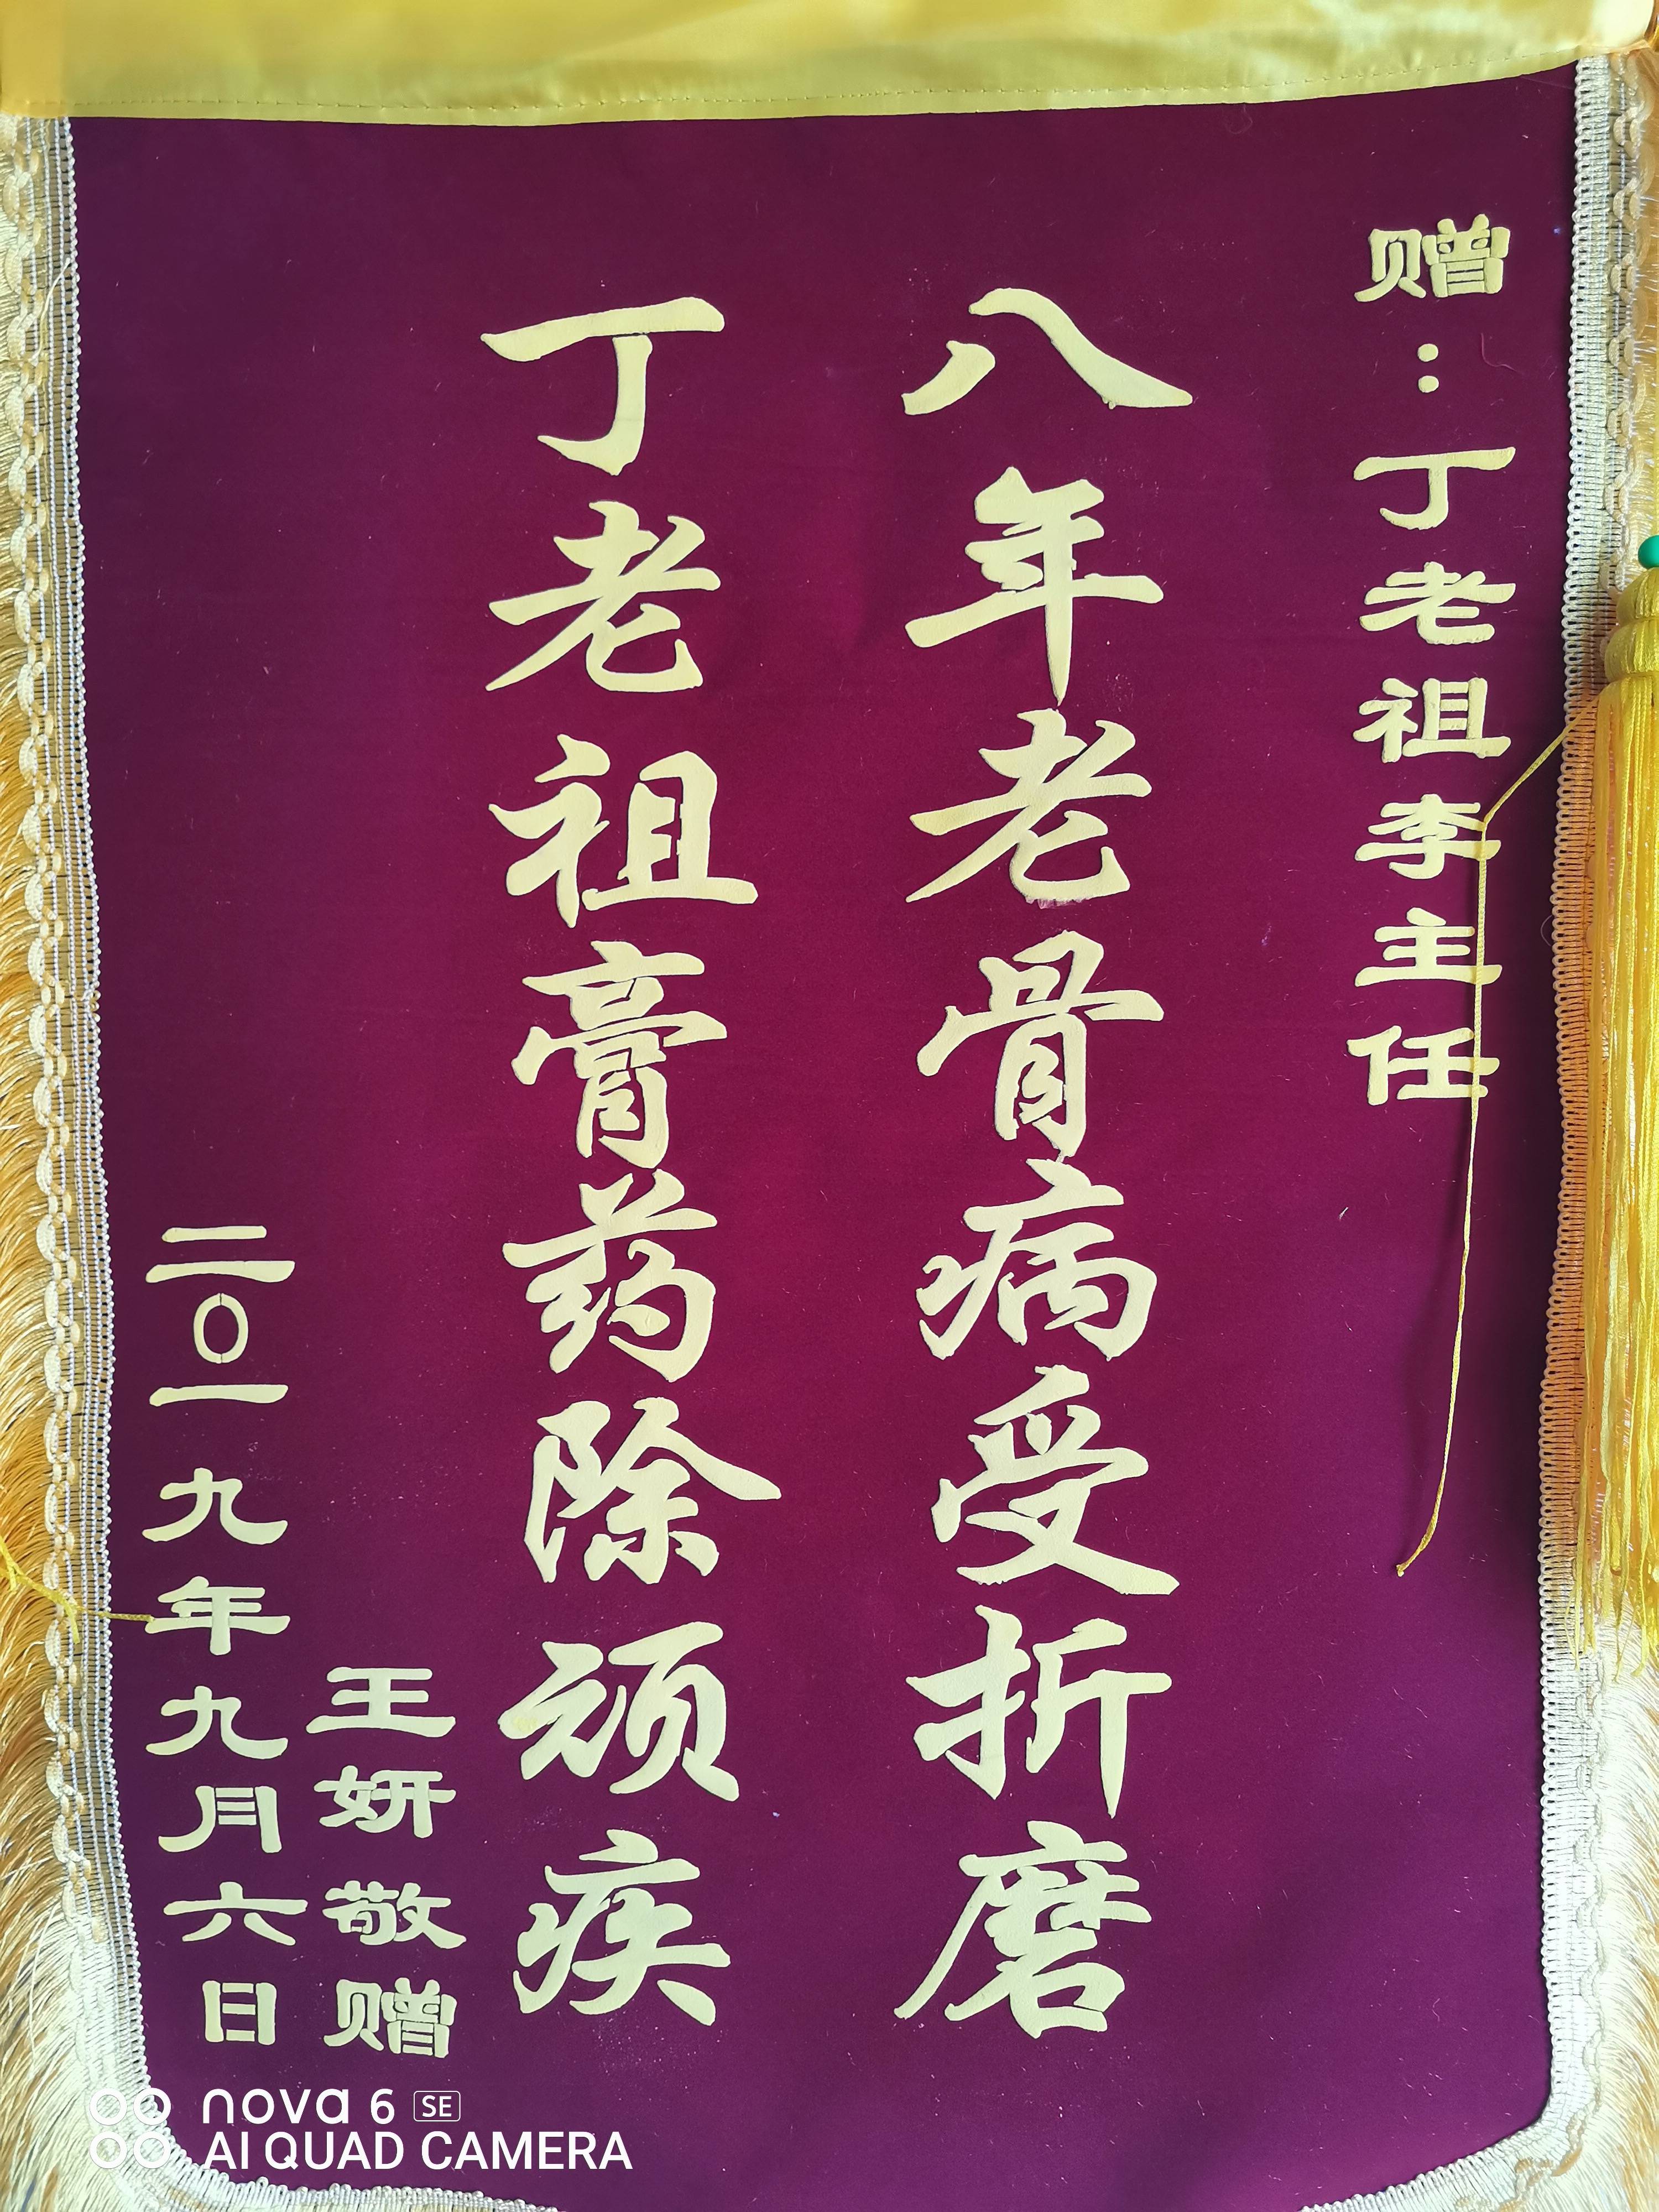 赠：丁老祖李主任
八年老骨病受折磨
丁老祖膏药除顽疾
王妍敬赠
二〇一九年九月六日
nova 6 SE
AI QUAD CAMERA